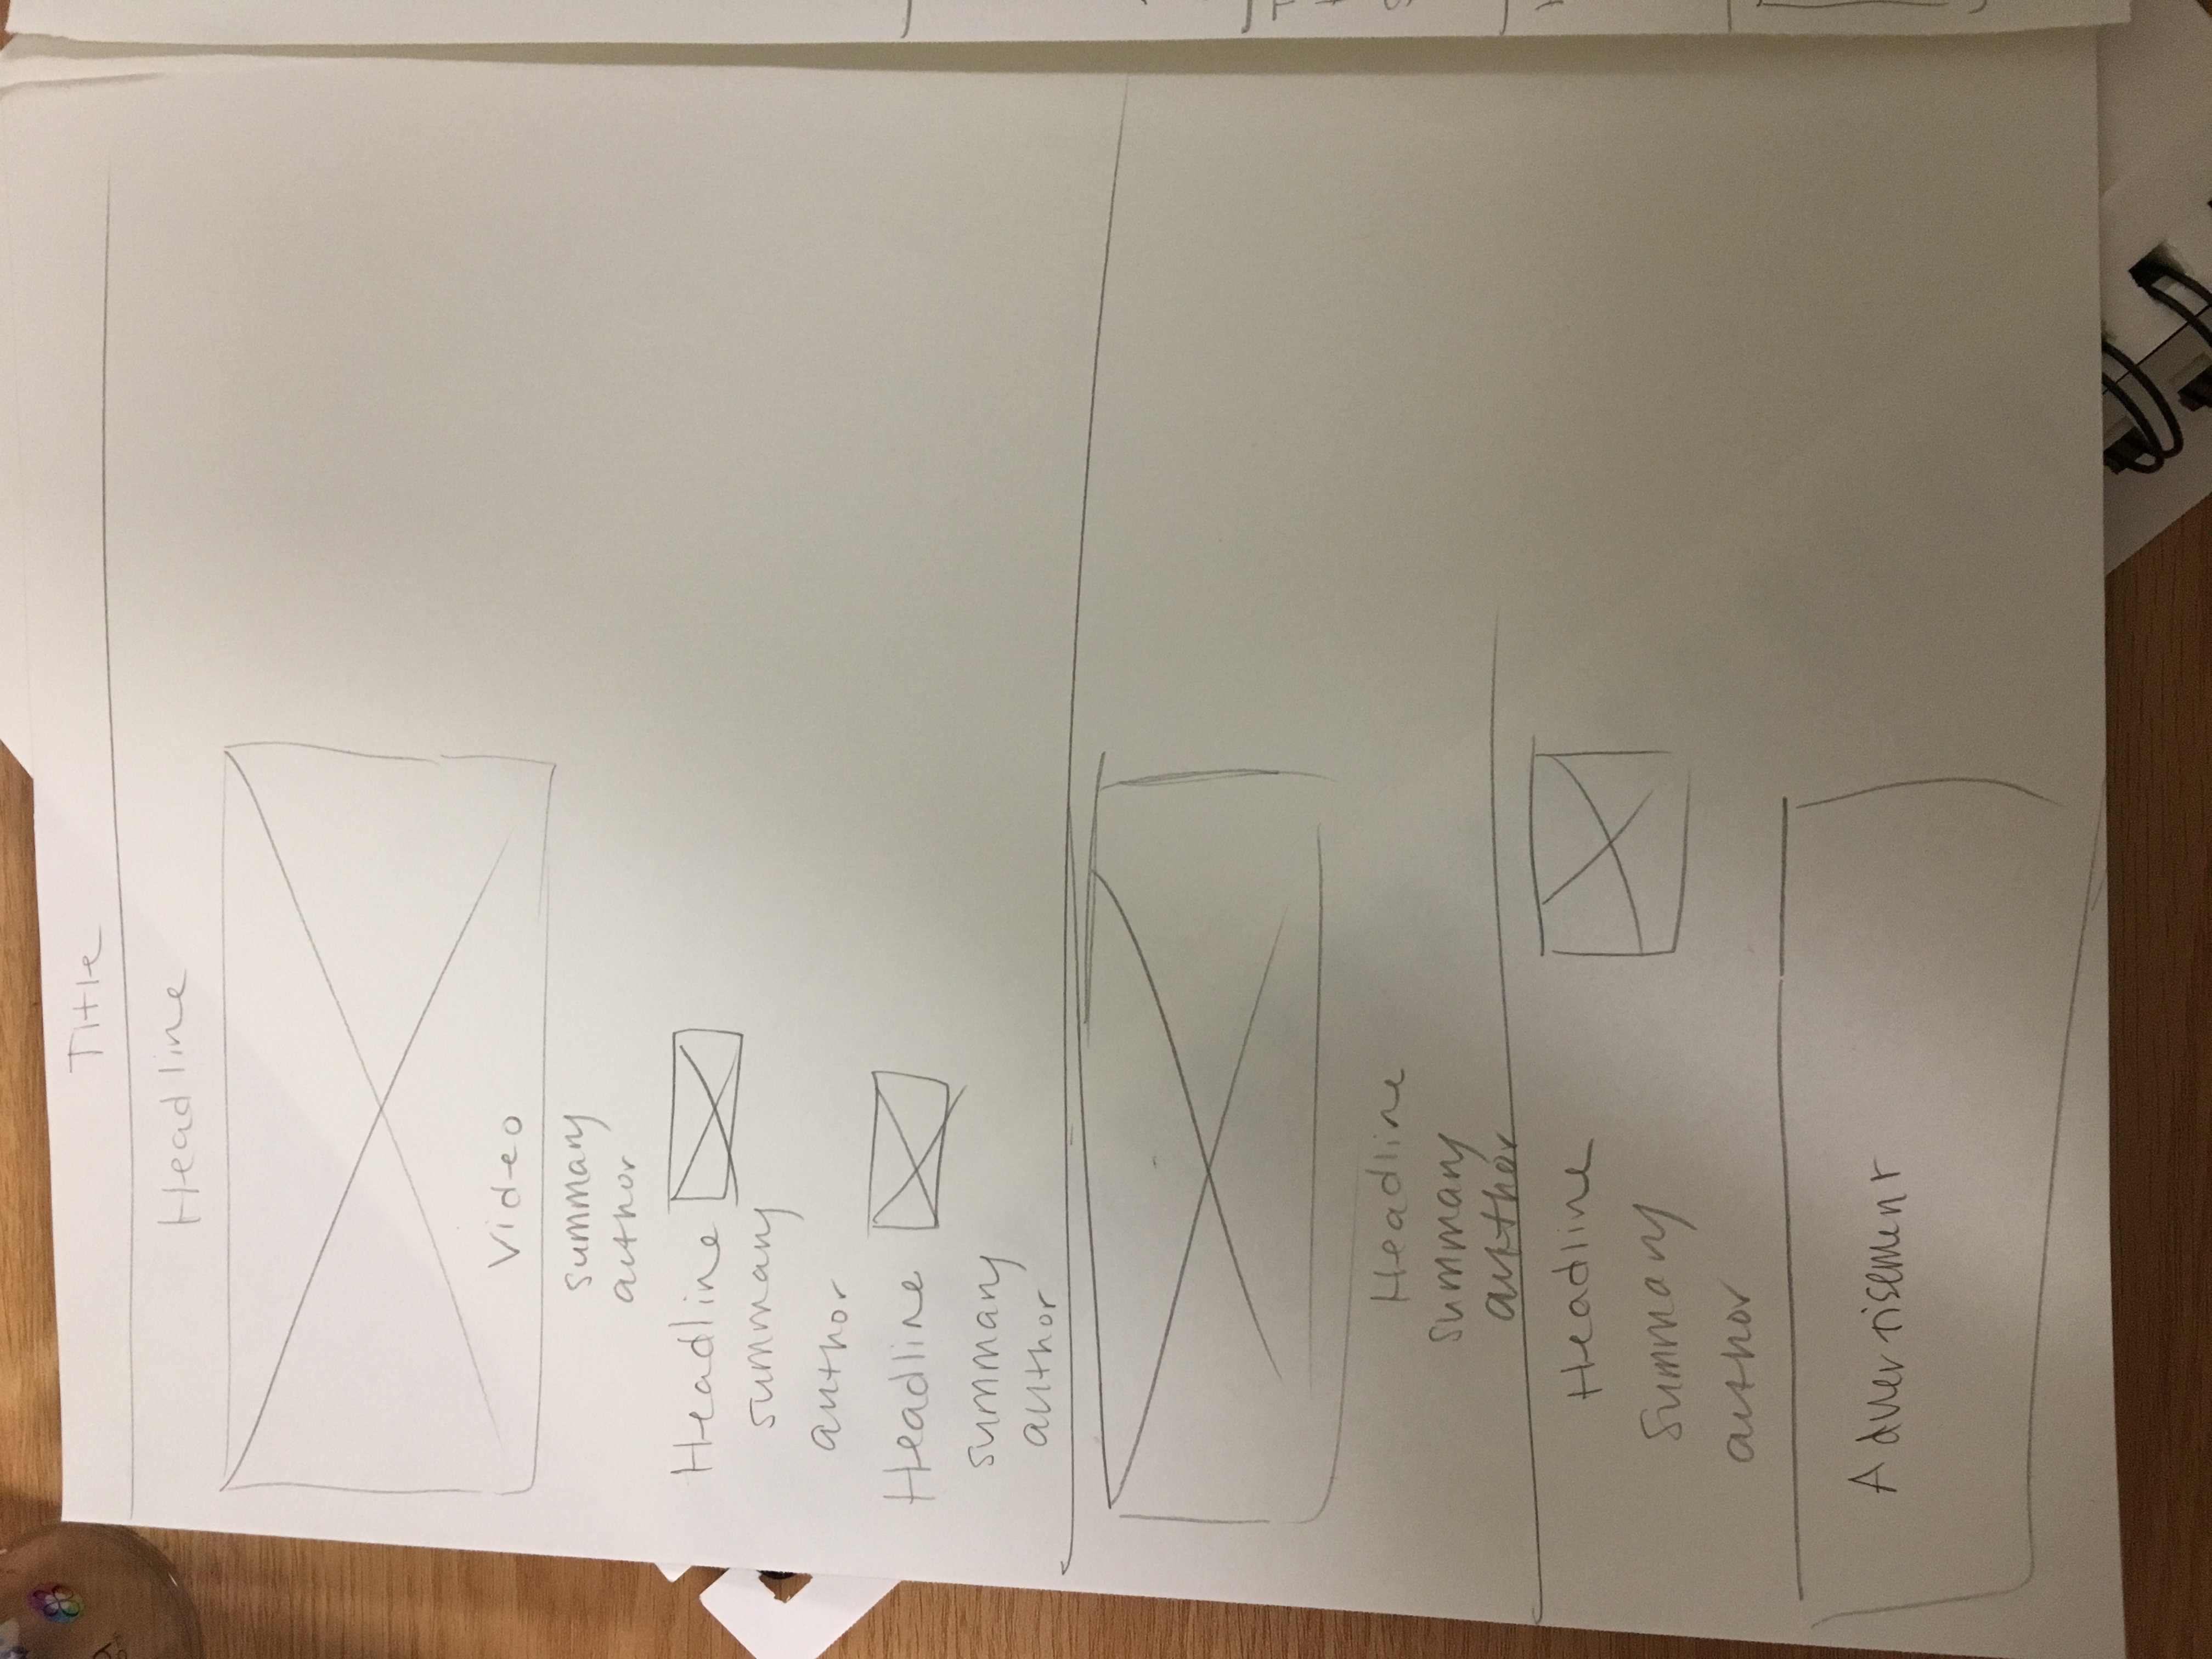 Title
Headline
Video
summary
author
Headline
summary
author
Headline
summary
author
Headline
summary
author
Headline
summary
author
Advertisement